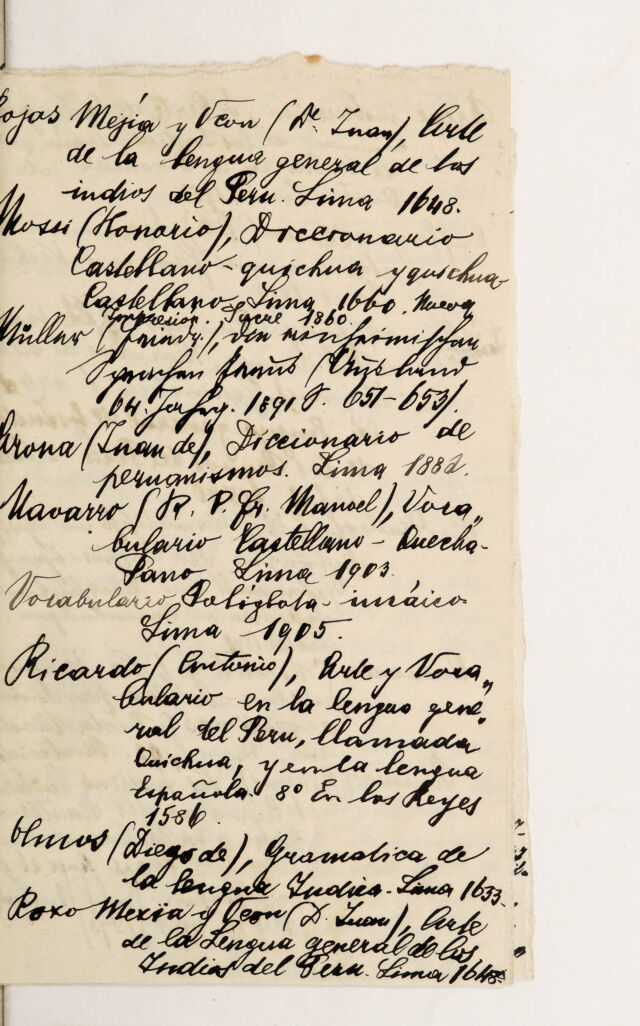 Rojas Mejía y Ocon (Dr. Juan), Arte
de la lengua general de los
indios del Peru. Lima 1648.
Mossi (Honorio), Diccionario
Castellano-quichua y quichua-
Castellano, Lima 1660. Nueva
Impresion. Sucre 1860.
Müller (Friedr.), Die einheimischen
Sprachen Perus (Ausland
64. Jahrg. 1891 S. 651-653).
Arona (Juan de), Diccionario de
peruanismos. Lima 1882.
Navarro (R. P. Fr. Manuel), Voca„
bulario Castellano - Quecha-
Pano Lima 1903.
Vocabulario Políglota incáico.
Lima 1905.
Ricardo (Antonio), Arte y Voca„
bulario en la lengua gene„
ral del Peru, llamada
Quichua, y en la lengua
Española. 8º En los Reyes
1586.
Olmos (Diego de), Gramatica de
la lengua Indica. Lima 1633.
Roxo Mexia y Ocon (D. Juan), Arte
de la Lengua general de los
Indios del Peru. Lima 1648.